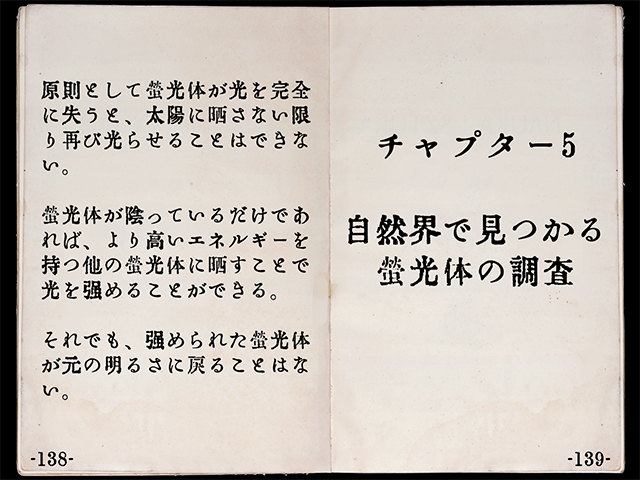 原則として螢光体が光を完全
に失うと、太陽に晒さない限
り再び光らせることはできな
い。
螢光体が陰っているだけであ
れば、より高いエネルギーを
持つ他の螢光体に晒すことで
光を强めることができる。
それでも、强められた螢光体
が元の明るさに戻ることはな
い。
-138-
チャプター5
自然界で見つかる
螢光体の調査
-139-